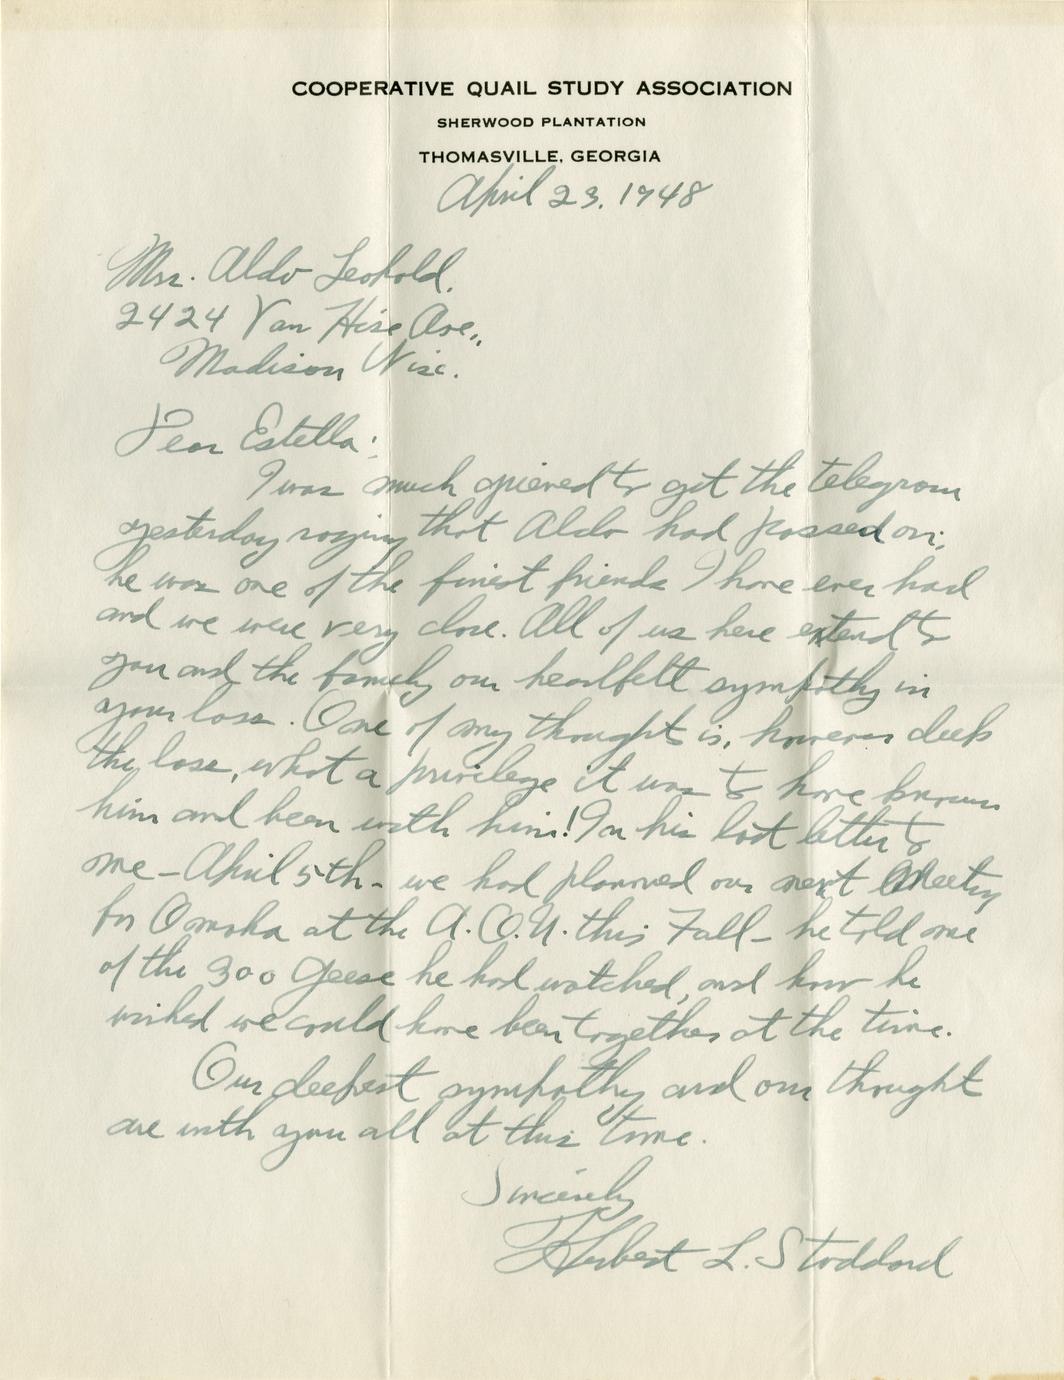 COOPERATIVE QUAIL STUDY ASSOCIATION
SHERWOOD PLANTATION
THOMASVILLE, GEORGIA
April 23, 1948
Mrs. Aldo Leopold.
2424 Van Hise Ave.,
Madison Wisc.
Dear Estella:
I was much grieved to get the telegram
yesterday saying that Aldo had passed on;
he was one of the finest friends I have ever had
and we were very close. All of us here extend to
you and the family our heartfelt sympathy in
your loss. One of my thoughts is, however deep
the loss, what a privilege it was to have known
him and been with him! In his last letter to
me - April 5th - we had planned our next Meeting
for Omaha at the A.O.U. this Fall - he told me
of the 300 Geese he had watched, and how he
wished we could have been together at the time.
Our deepest sympathy and our thought
are with you all at this time.
Sincerely
Herbert L. Stoddard